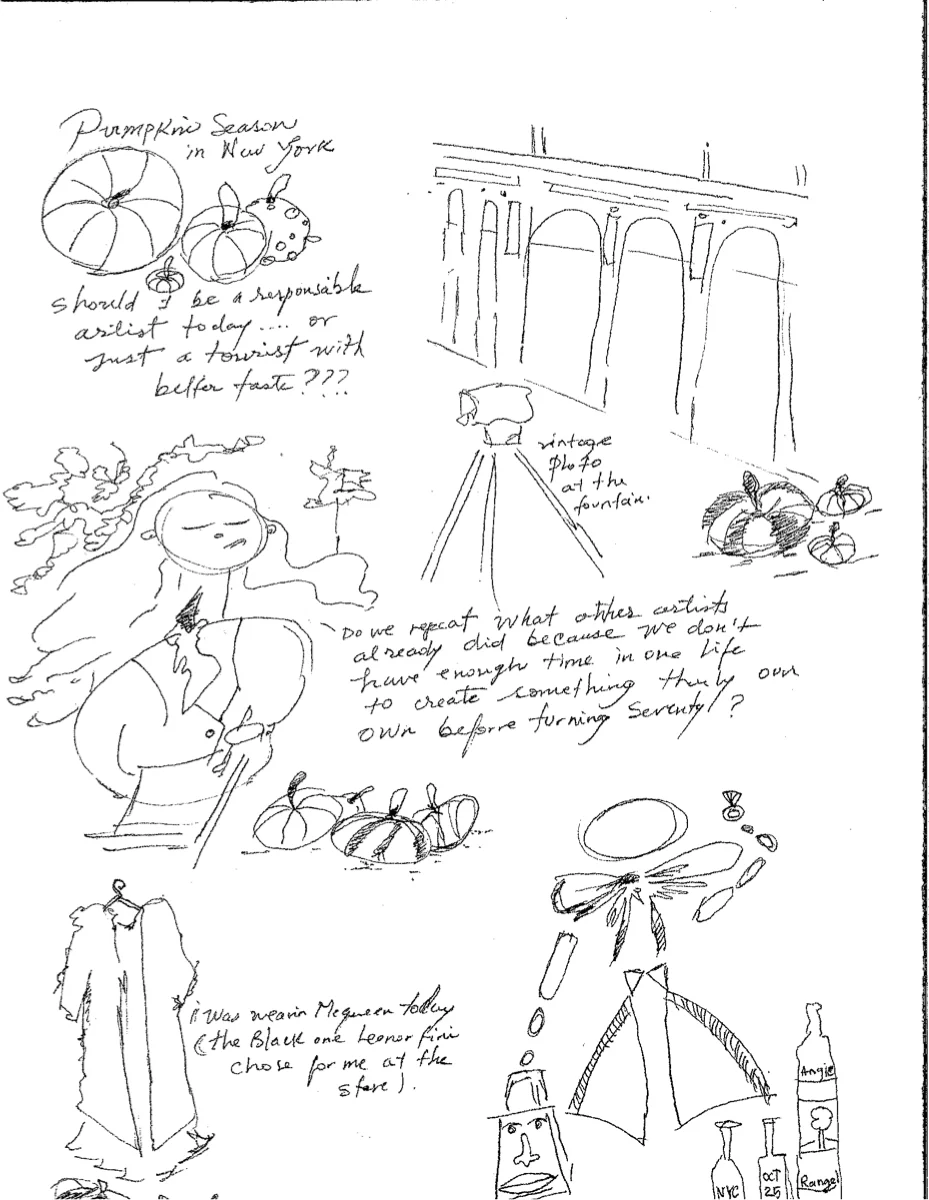 Pumpkin Season
in New York
should I be a responsable
artist today.... or
just a tourist with
better taste???
vintage
photo
at the
fountain.
Do we repeat what other artists
already did because we don't
have enough time in one life
to create something thruly our
own before turning Seventy?
i was wearin Mcqueen today
(the Black one Leonor fini
chose for me at the
store).
Angie
Rangel
NYC
OCT
25